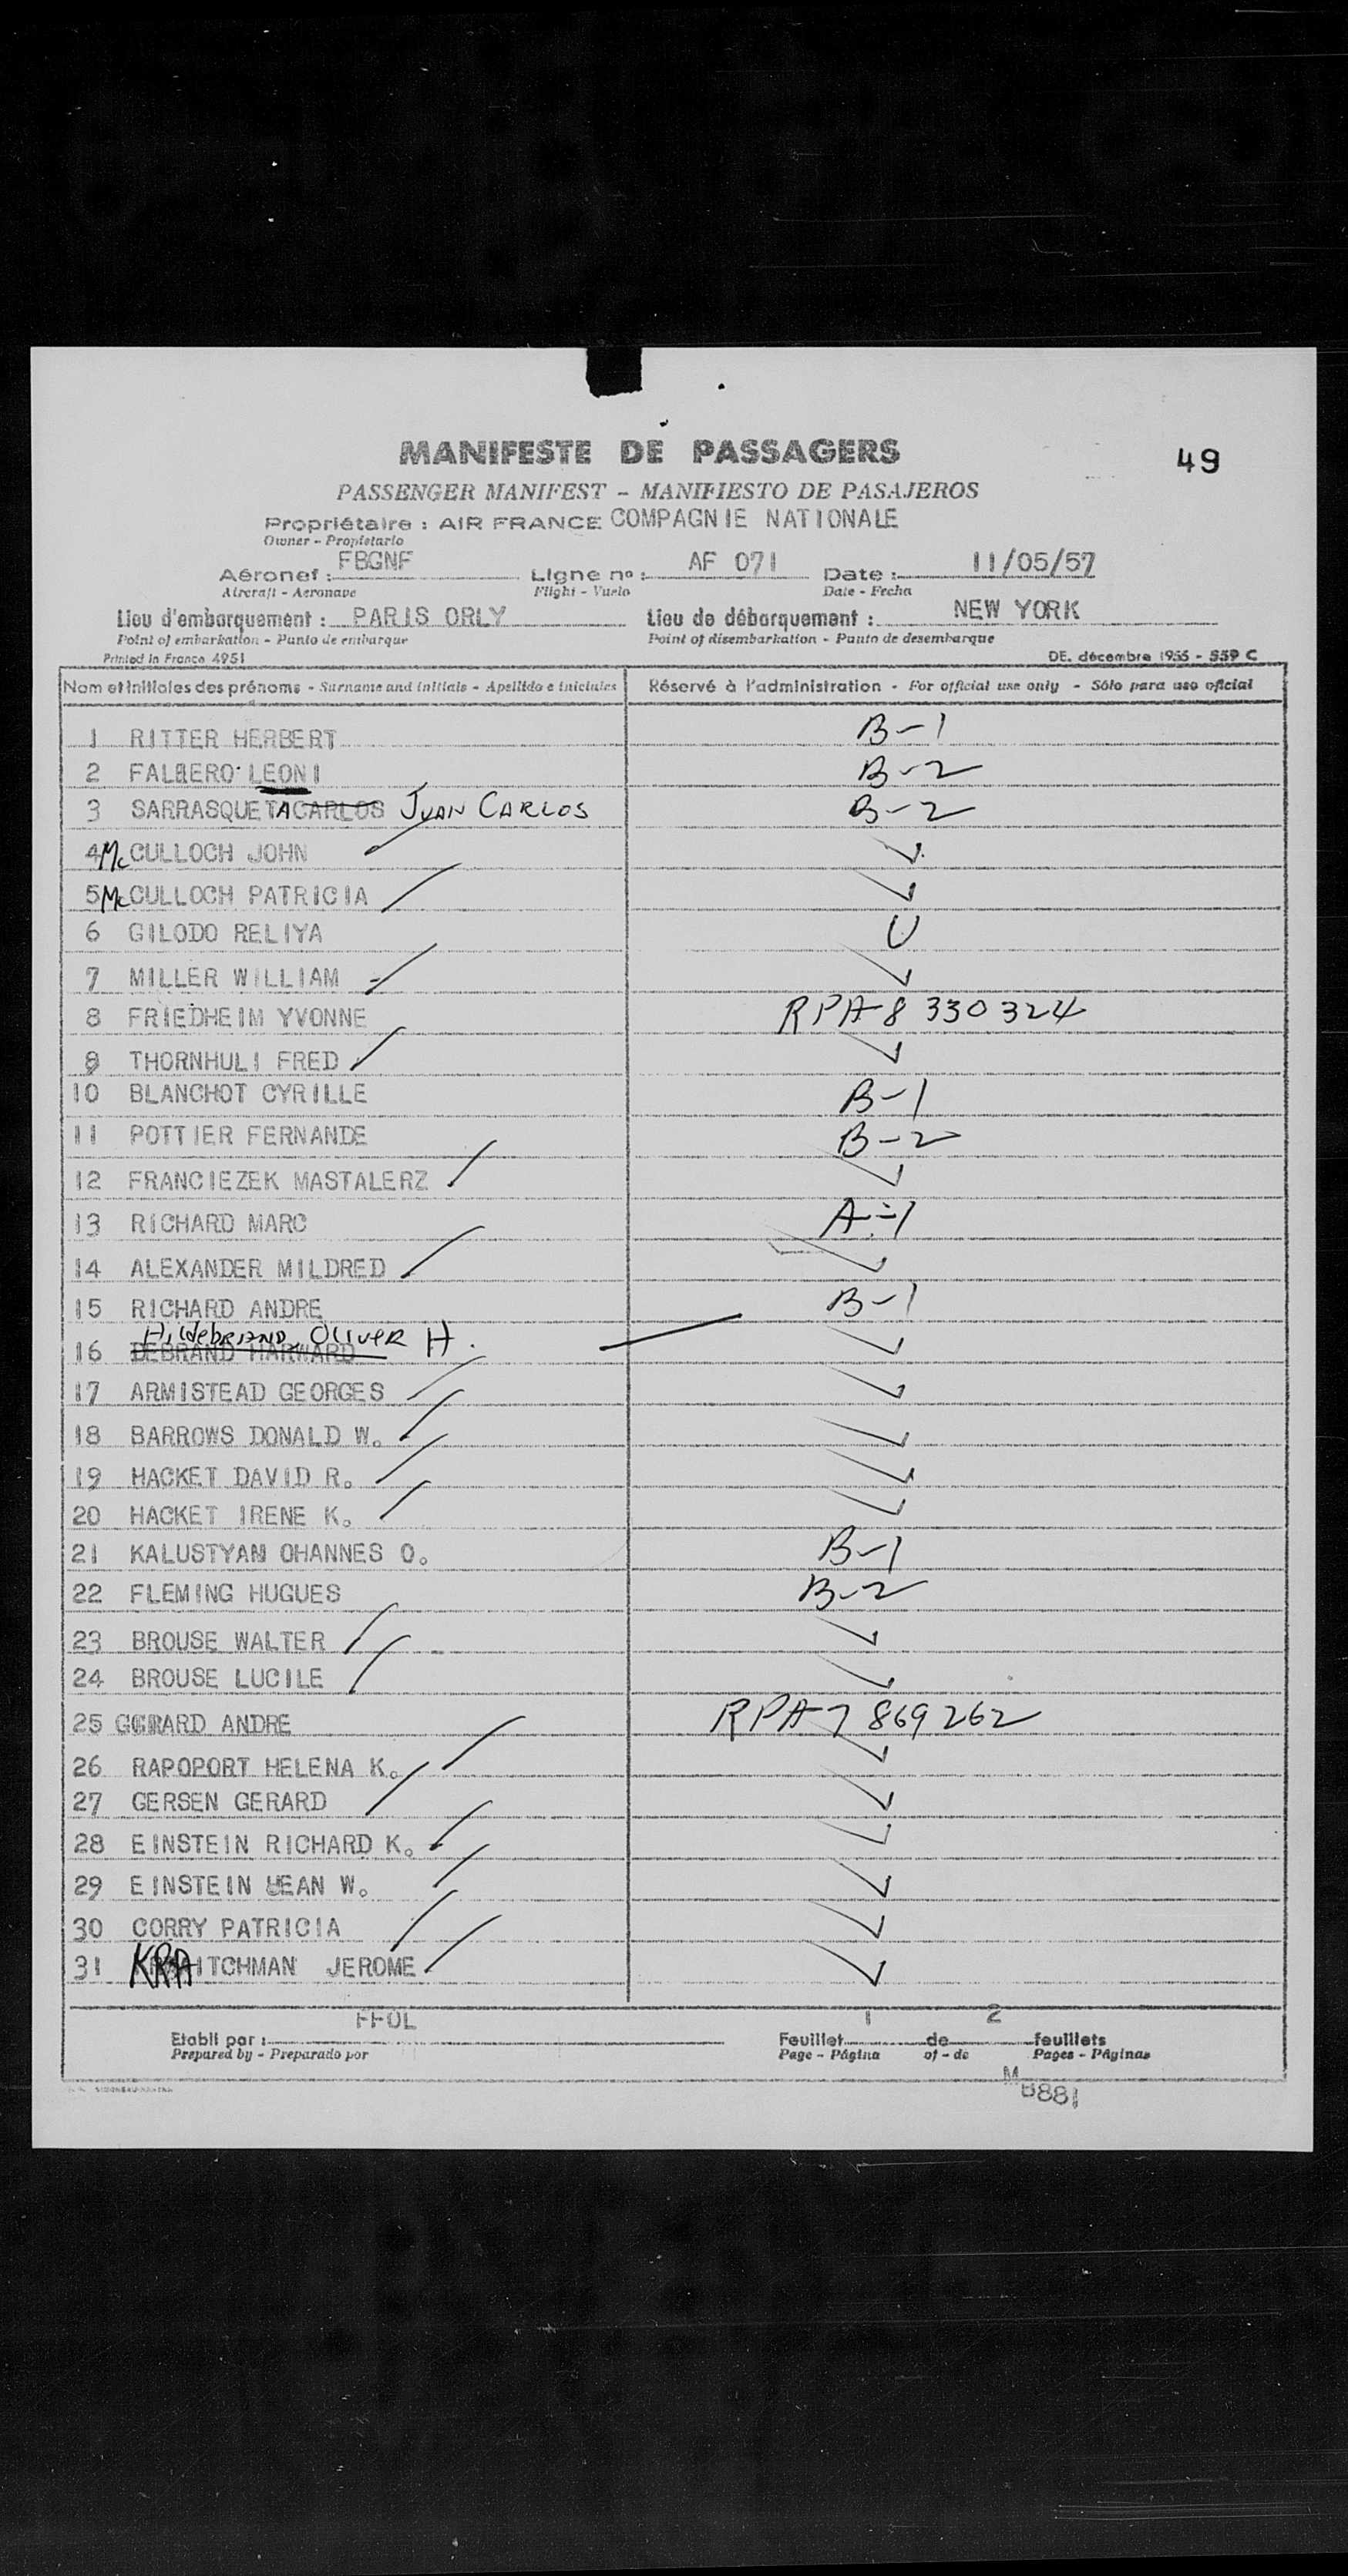 MANIFESTE DE PASSAGERS
49
PASSENGER MANIFEST - MANIFIESTO DE PASAJEROS
Propriétaire : AIR FRANCE COMPAGNIE NATIONALE
Owner - Propietario
Aéronef : FBGNF Ligne no : AF 071 Date : 11/05/57
Aircraft - Aeronave Flight - Vuelo Date - Fecha
Lieu d'embarquement : PARIS ORLY Lieu de débarquement : NEW YORK
Point of embarkation - Punto de embarque Point of disembarkation - Punto de desembarque
Printed in France 4951 DE. décembre 1955 - 559 C
Nom et initiales des prénoms - Surname and initials - Apellido e iniciales Réservé à l'administration - For official use only - Sólo para uso oficial
1 RITTER HERBERT B-1
2 FALBERO LEONI B-2
3 SARRASQUETA CARLOS JUAN CARLOS B-2
4 McCULLOCH JOHN ✓
5 McCULLOCH PATRICIA ✓
6 GILODO RELIYA U
7 MILLER WILLIAM ✓
8 FRIEDHEIM YVONNE RPA-8 330 324
9 THORNHULI FRED ✓
10 BLANCHOT CYRILLE B-1
11 POTTIER FERNANDE B-2
12 FRANCIEZEK MASTALERZ ✓
13 RICHARD MARC A-1
14 ALEXANDER MILDRED ✓
15 RICHARD ANDRE B-1
HildebRAND, OLIVER H.
16 DEBRAND HARWARD ✓
17 ARMISTEAD GEORGES ✓
18 BARROWS DONALD W. ✓
19 HACKET DAVID R. ✓
20 HACKET IRENE K. ✓
21 KALUSTYAN OHANNES O. B-1
22 FLEMING HUGUES B-2
23 BROUSE WALTER ✓
24 BROUSE LUCILE ✓
25 GERARD ANDRE RPA-7 869 262
26 RAPOPORT HELENA K. ✓
27 GERSEN GERARD ✓
28 EINSTEIN RICHARD K. ✓
29 EINSTEIN JEAN W. ✓
30 CORRY PATRICIA ✓
31 KRAITCHMAN JEROME ✓
Etabli par : FFOL Feuillet 1 de 2 feuillets
Prepared by - Preparado por Page - Página of - de Pages - Páginas